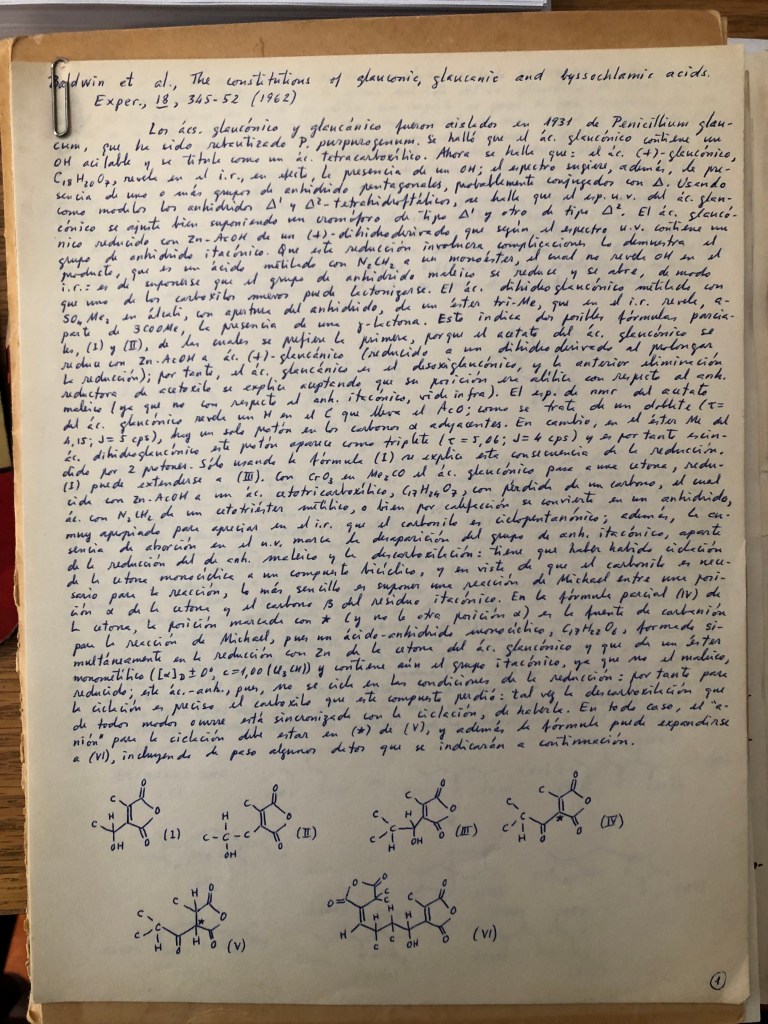 Baldwin et al., The constitutions of glauconic, glaucanic and byssochlamic acids.
Exper., 18, 345-52 (1962)
Los ács. glaucónico y glaucánico fueron aislados en 1931 de Penicillium glau-
cum, que ha sido rebautizado P. purpurogenum. Se halló que el ác. glaucónico contiene un
OH acilable y se titula como un ác. tetracarboxílico. Ahora se halla que: el ác. (+)-glaucónico,
C18H20O7, revela en el i.r., en efecto, la presencia de un OH; el espectro sugiere, además, la pre-
sencia de uno o más grupos de anhídrido pentagonales, probablemente conjugados con Δ. Usando
como modelos los anhídridos Δ¹ y Δ²-tetrahidroftálicos, se halla que el esp. u.v. del ác. glau-
cónico se ajusta bien suponiendo un cromóforo de tipo Δ¹ y otro de tipo Δ². El ác. glaucó-
nico reducido con Zn-AcOH da un (+)-dihidroderivado, que según el espectro u.v. contiene un
grupo de anhídrido itacónico. Que esta reducción involucra complicaciones lo demuestra el
producto, que es un ácido metilado con N2CH2 a un monoéster, el cual no revela OH en el
i.r.: es de suponerse que el grupo de anhídrido maleico se reduce y se abre, de modo
que uno de los carboxilos nuevos puede lactonizarse. El ác. dihidroglaucónico metilado con
SO4Me2 en álcali, con apertura del anhídrido, da un éster tri-Me, que en el i.r. revela, a-
parte de 3COOMe, la presencia de una γ-lactona. Esto indica dos posibles fórmulas parcia-
les, (I) y (II), de las cuales se prefiere la primera, porque el acetato del ác. glaucónico se
reduce con Zn-AcOH a ác. (+)-glaucánico (reducido a un dihidroderivado al prolongar
la reducción); por tanto, el ác. glaucánico es el desoxiglaucónico, y la anterior eliminación
reductora de acetoxilo se explica aceptando que su posición era alílica con respecto al anh.
maleico (ya que no con respecto al anh. itacónico, vide infra). El esp. de nmr del acetato
del ác. glaucónico revela un H en el C que lleva el AcO; como se trata de un doblete (τ=
4,15; J=5 cps), hay un solo protón en los carbonos α adyacentes. En cambio, en el éster Me del
ác. dihidroglaucónico este protón aparece como triplete (τ=5,06; J=4 cps) y es por tanto escin-
dido por 2 protones. Sólo usando la fórmula (I) se explica esta consecuencia de la reducción.
(I) puede extenderse a (III). Con CrO3 en Me2CO el ác. glaucónico pasa a una cetona, redu-
cida con Zn-AcOH a un ác. cetotricarboxílico, C17H24O7, con pérdida de un carbono, el cual
ác. con N2CH2 da un cetotriéster metílico, o bien por calefacción se convierte en un anhídrido,
muy apropiado para apreciar en el i.r. que el carbonilo es ciclopentanónico; además, la au-
sencia de absorción en el u.v. marca la desaparición del grupo de anh. itacónico, aparte
de la reducción del de anh. maleico y la descarboxilación: tiene que haber habido ciclación
de la cetona monocíclica a un compuesto bicíclico, y en vista de que el carbonilo es nece-
sario para la reacción, lo más sencillo es suponer una reacción de Michael entre una posi-
ción α de la cetona y el carbono β del residuo itacónico. En la fórmula parcial (IV) de
la cetona, la posición marcada con * (y no la otra posición α) es la fuente de carbanión
para la reacción de Michael, pues un ácido-anhídrido monocíclico, C17H22O6, formado si-
multáneamente en la reducción con Zn de la cetona del ác. glaucónico y que da un éster
monometílico ([α]D ± 0°, c=1,00 (Cl3CH)) y contiene aún el grupo itacónico, ya que no el maleico,
reducido; este ác.-anh., pues, no se cicla en las condiciones de la reducción: por tanto para
la ciclación es preciso el carboxilo que este compuesto perdió: tal vez la descarboxilación que
de todos modos ocurre está sincronizada con la ciclación, de haberla. En todo caso, el "a-
nión" para la ciclación debe estar en (*) de (V), y además la fórmula puede expandirse
a (VI), incluyendo de paso algunos datos que se indicarán a continuación.
(I) (II) (III) (IV)
(V) (VI)
1